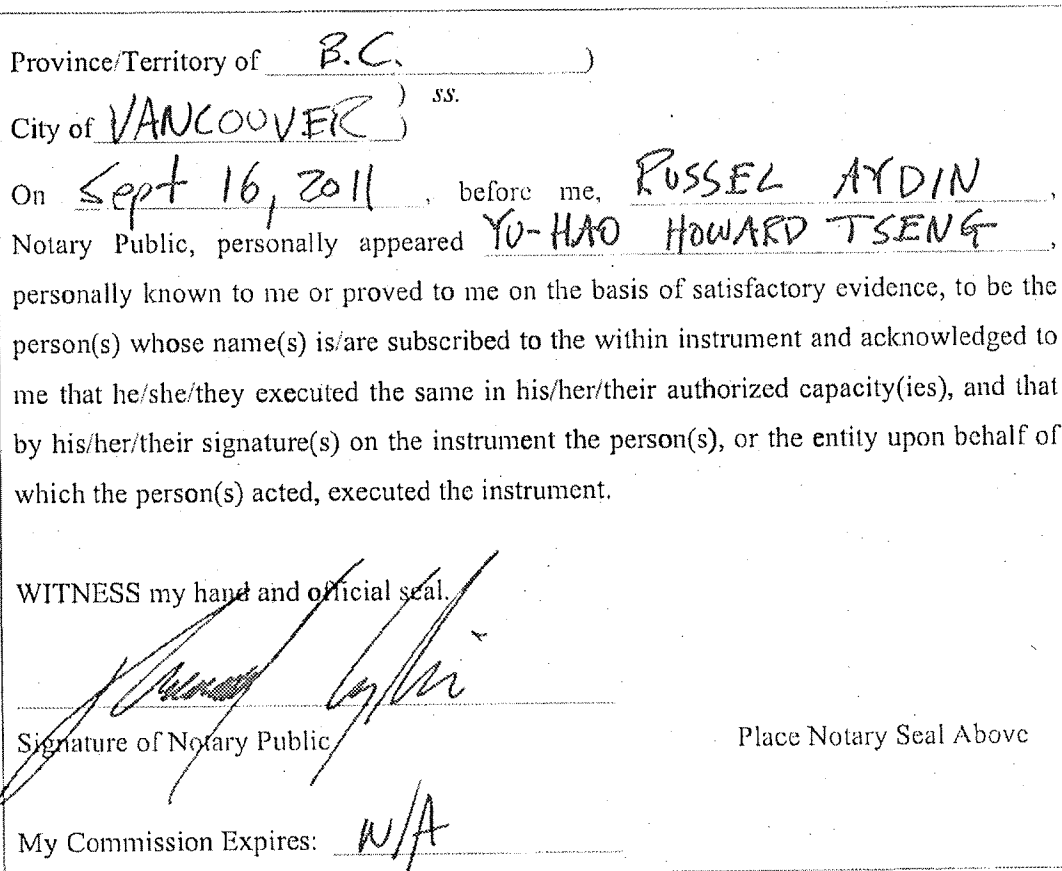 Province/Territory of B.C. )
) ss.
City of VANCOUVER )
On Sept 16, 2011, before me, RUSSEL AYDIN,
Notary Public, personally appeared YU-HAO HOWARD TSENG,
personally known to me or proved to me on the basis of satisfactory evidence, to be the
person(s) whose name(s) is/are subscribed to the within instrument and acknowledged to
me that he/she/they executed the same in his/her/their authorized capacity(ies), and that
by his/her/their signature(s) on the instrument the person(s), or the entity upon behalf of
which the person(s) acted, executed the instrument.
WITNESS my hand and official seal.
Signature of Notary Public
Place Notary Seal Above
My Commission Expires: N/A